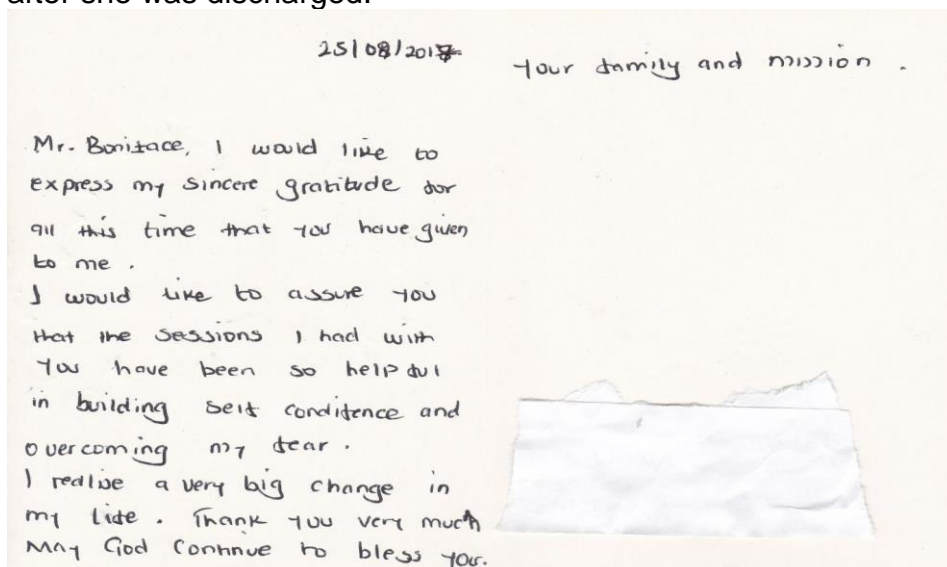 after she was discharged.
25/08/2017
Mr. Boniface, I would like to
express my sincere gratitude for
all this time that you have given
to me.
I would like to assure you
that the sessions I had with
You have been so helpful
in building self confidence and
overcoming my fear.
I realise a very big change in
my life. Thank you very much
May God continue to bless you.
your family and mission.